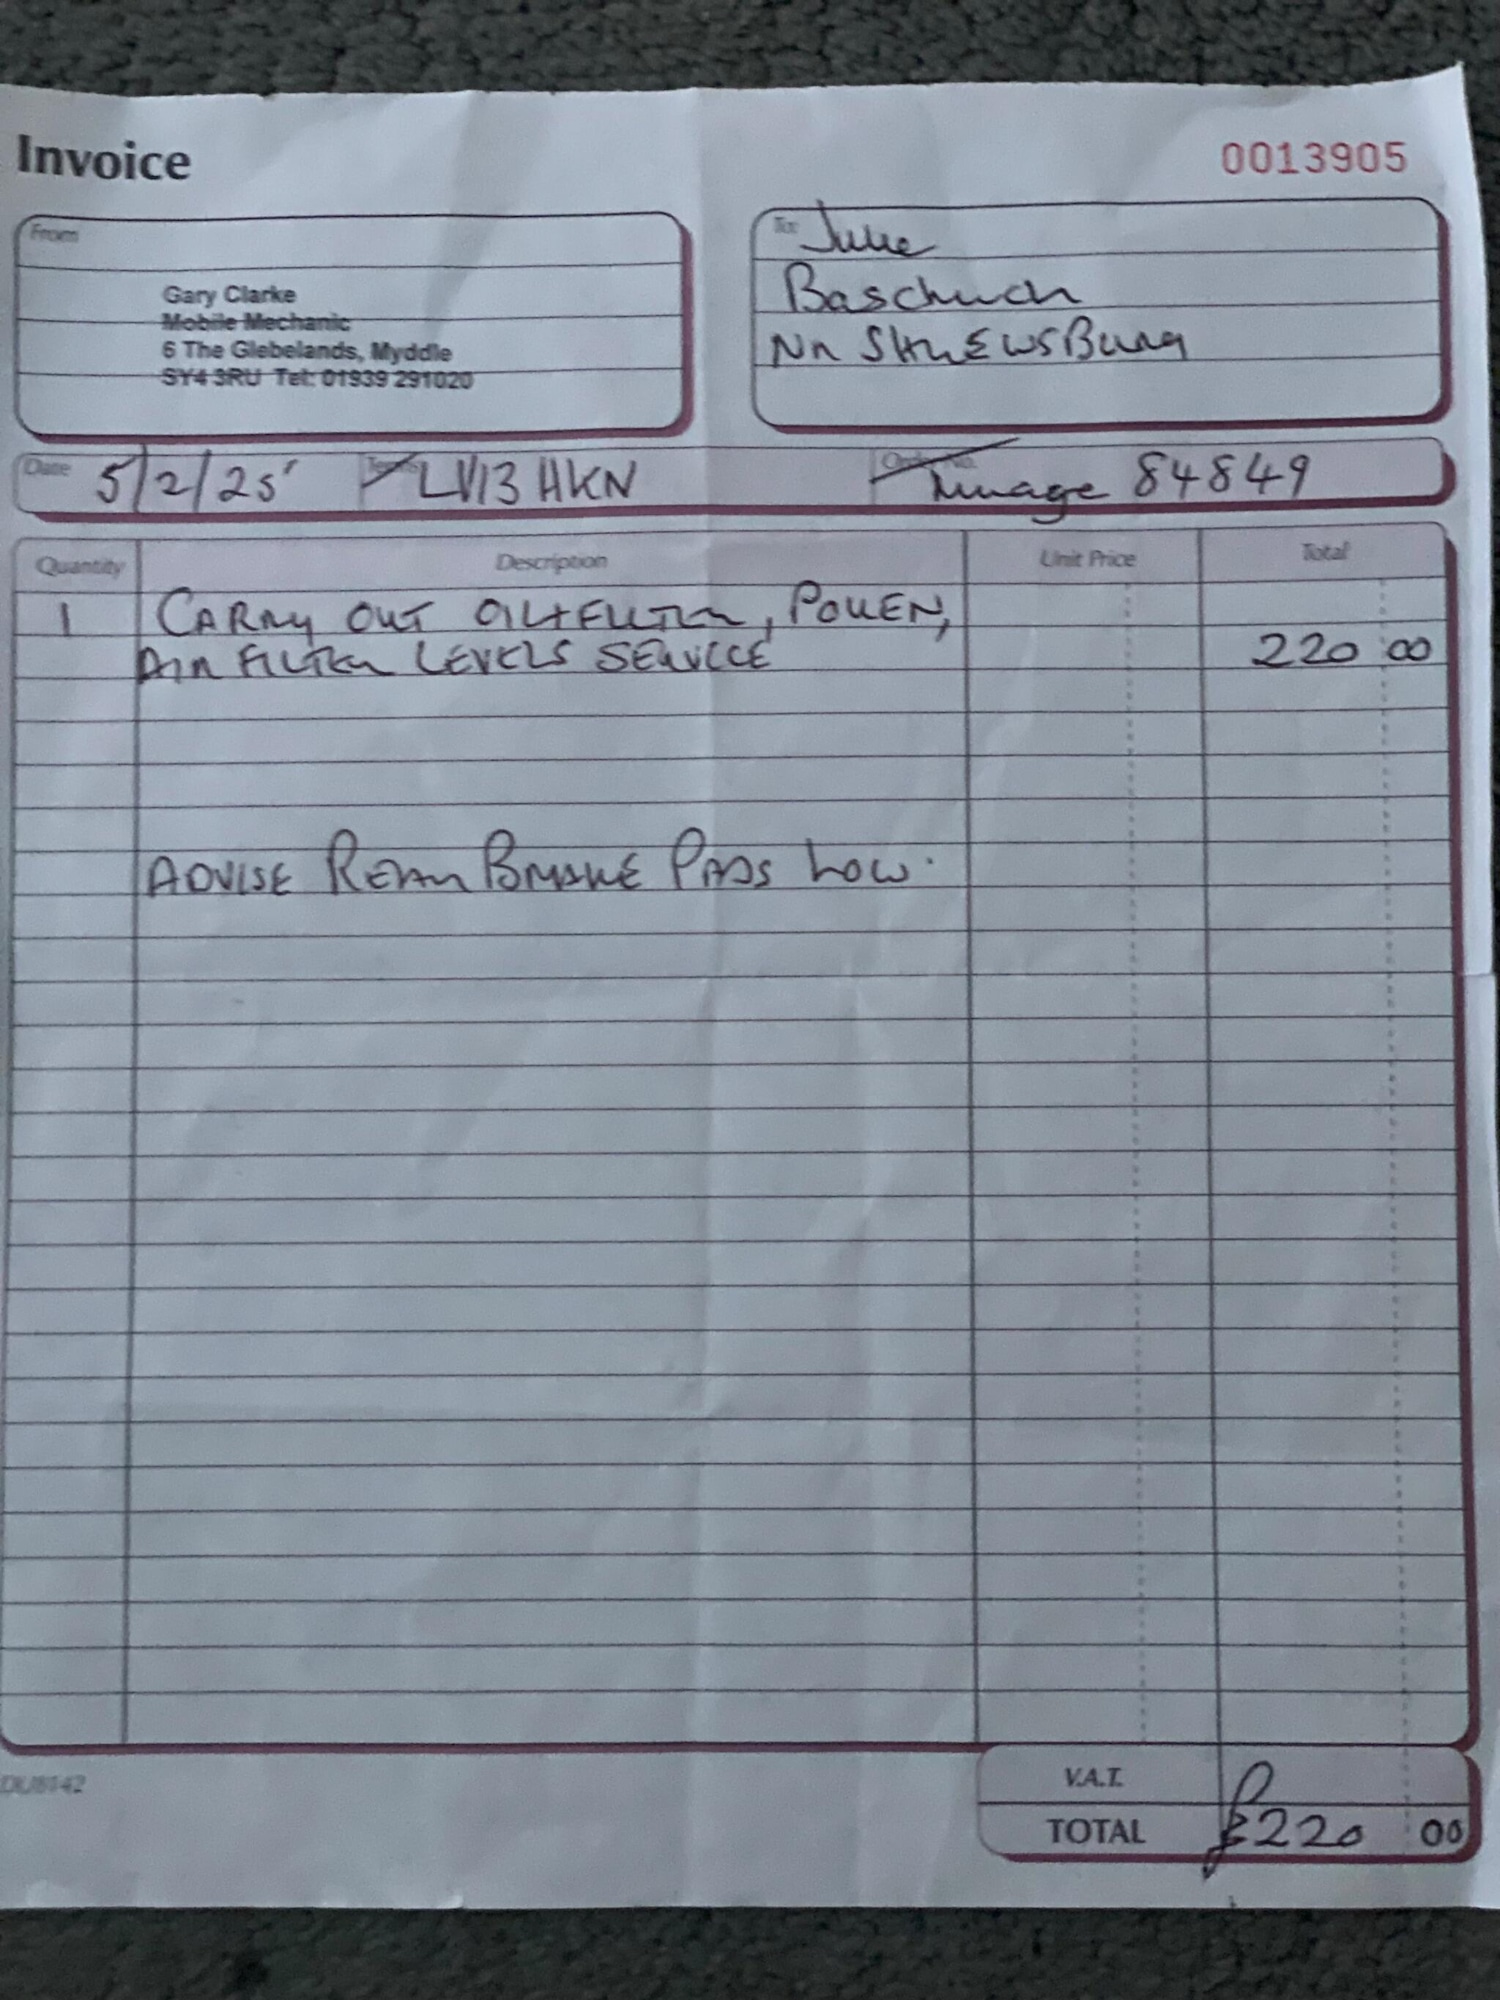 Invoice
0013905
From
Gary Clarke
Mobile Mechanic
6 The Glebelands, Myddle
SY4 3RU Tel: 01939 291020
To:
Julie
Baschurch
Nr SHREWSBury
Date 5/2/25' LV13 HKN Order No. milage 84849
Quantity Description Unit Price Total
1 CARRY OUT OIL+FILTER, POLLEN,
AIR FILTER LEVELS SERVICE 220 00
ADVISE REAR BRAKE PADS LOW.
DU8142
V.A.T.
TOTAL £220 00